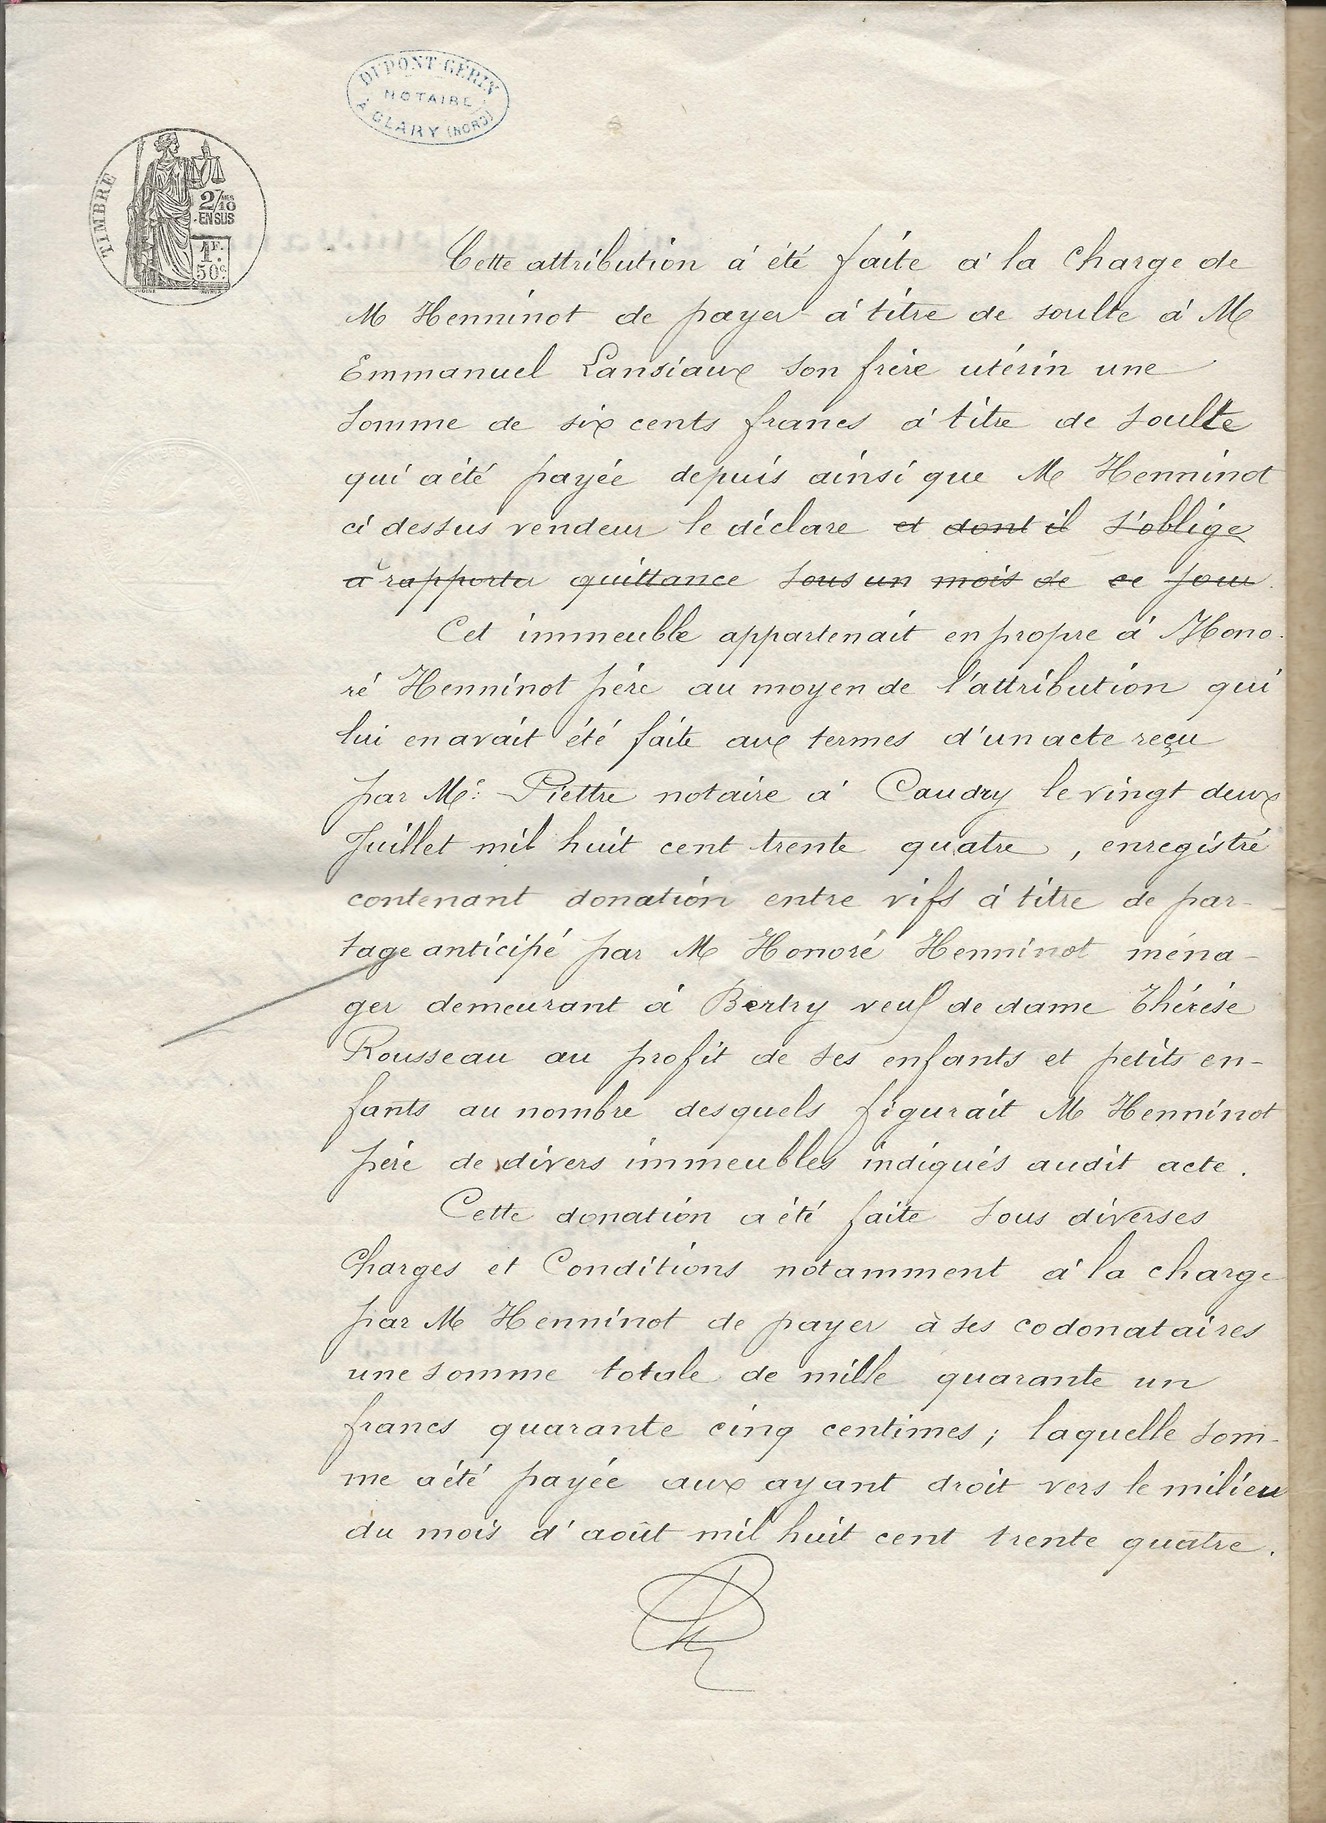 DUPONT-GÉRIN
NOTAIRE
À CLARY (NORD)
TIMBRE
2/10 MES
EN SUS
1F.
50C.
Cette attribution à été faite à la charge de
M Henninot de payer à titre de soulte à M
Emmanuel Lansiaux son frère utérin une
somme de six cents francs à titre de soulte
qui a été payée depuis ainsi que M Henninot
ci dessus vendeur le déclare et dont il s'oblige
à rapporter quittance sous un mois de ce jour.
Cet immeuble appartenait en propre à Hono-
ré Henninot père au moyen de l'attribution qui
lui en avait été faite aux termes d'un acte reçu
par Me. Piettre notaire à Caudry le vingt deux
Juillet mil huit cent trente quatre, enregistré
contenant donation entre vifs à titre de par-
tage anticipé par M Honoré Henninot ména-
ger demeurant à Bertry veuf de dame Thérèse
Rousseau au profit de ses enfants et petits en-
fants au nombre desquels figurait M Henninot
père de divers immeubles indiqués audit acte.
Cette donation a été faite sous diverses
Charges et Conditions notamment à la charge
par M Henninot de payer à ses codonataires
une somme totale de mille quarante un
francs quarante cinq centimes; laquelle som-
me a été payée aux ayant droit vers le milieu
du mois d'août mil huit cent trente quatre.